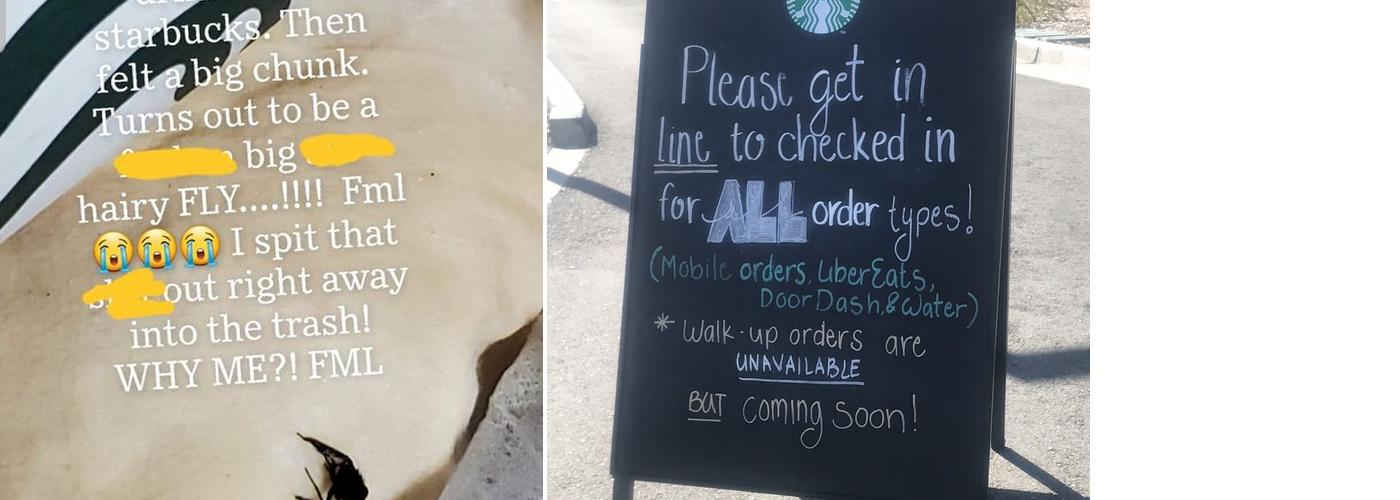 starbucks. Then
felt a big chunk.
Turns out to be a
big
hairy FLY....!!!! Fml
😭😭😭 I spit that
out right away
into the trash!
WHY ME?! FML
Please get in
line to checked in
for ALL order types!
(Mobile orders, UberEats,
DoorDash,&Water)
* Walk-up orders are
UNAVAILABLE
BUT coming soon!